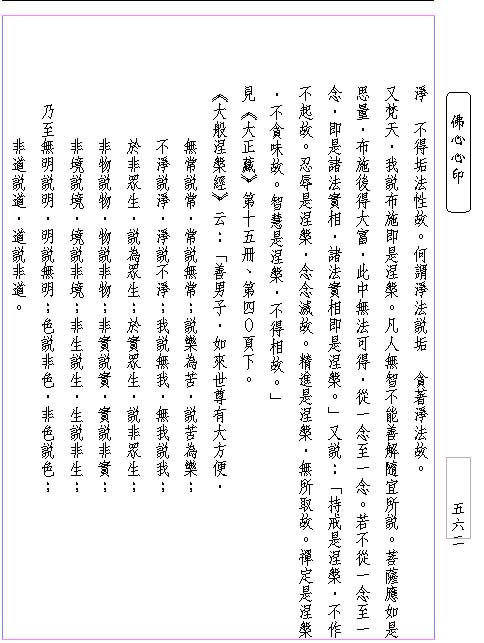 佛心心印
淨　不得垢法性故。何謂淨法說垢　貪著淨法故。
又梵天．我說布施即是涅槃。凡人無智不能善解隨宜所說。菩薩應如是
思量．布施後得大富．此中無法可得．從一念至一念。若不從一念至一
念．即是諸法實相．諸法實相即是涅槃。」又說：「持戒是涅槃．不作
不起故。忍辱是涅槃．念念滅故。精進是涅槃．無所取故。禪定是涅槃
．不貪味故。智慧是涅槃．不得相故。」
見《大正藏》第十五冊、第四０頁下。
《大般涅槃經》云：「善男子．如來世尊有大方便．
無常說常．常說無常；說樂為苦．說苦為樂；
不淨說淨．淨說不淨；我說無我．無我說我；
於非眾生．說為眾生；於實眾生．說非眾生；
非物說物．物說非物；非實說實．實說非實；
非境說境．境說非境；非生說生．生說非生；
乃至無明說明．明說無明；色說非色．非色說色；
非道說道．道說非道。
五六二